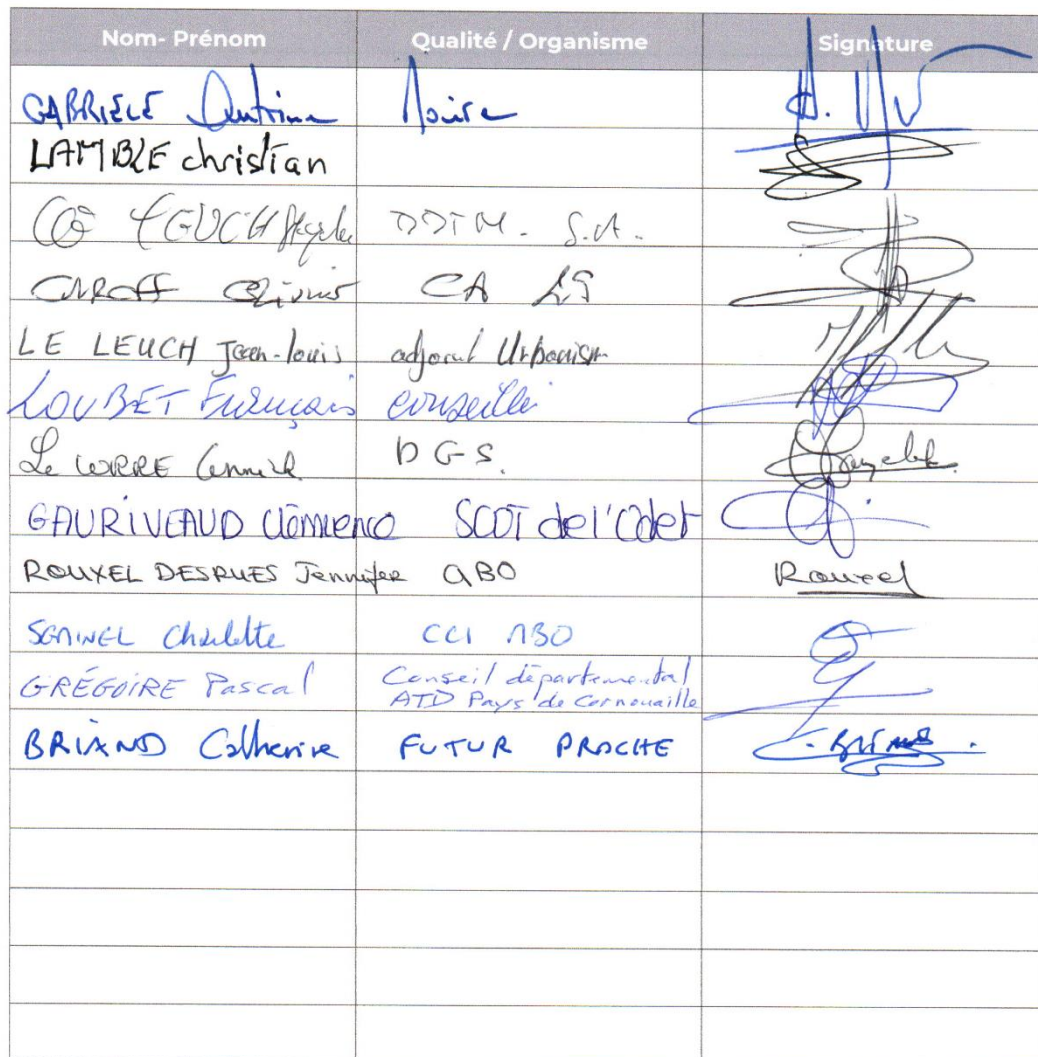 Nom- Prénom Qualité / Organisme Signature
GABRIELE Maire
LAMBLE christian
DDTM. S.A.
CAROFF Olivier CA 29
LE LEUCH Jean-louis adjoint Urbanism
LOUBET François conseiller
Le CORRE D G S.
GAURIVEAUD Clémence SCOT de l'Odet
ROUXEL DESPRES Jennifer QBO Rouxel
Charlotte CCI
GRÉGOIRE Pascal Conseil départemental
ATD Pays de Cornouaille
BRIAND Catherine FUTUR PROCHE C. BRIAND.